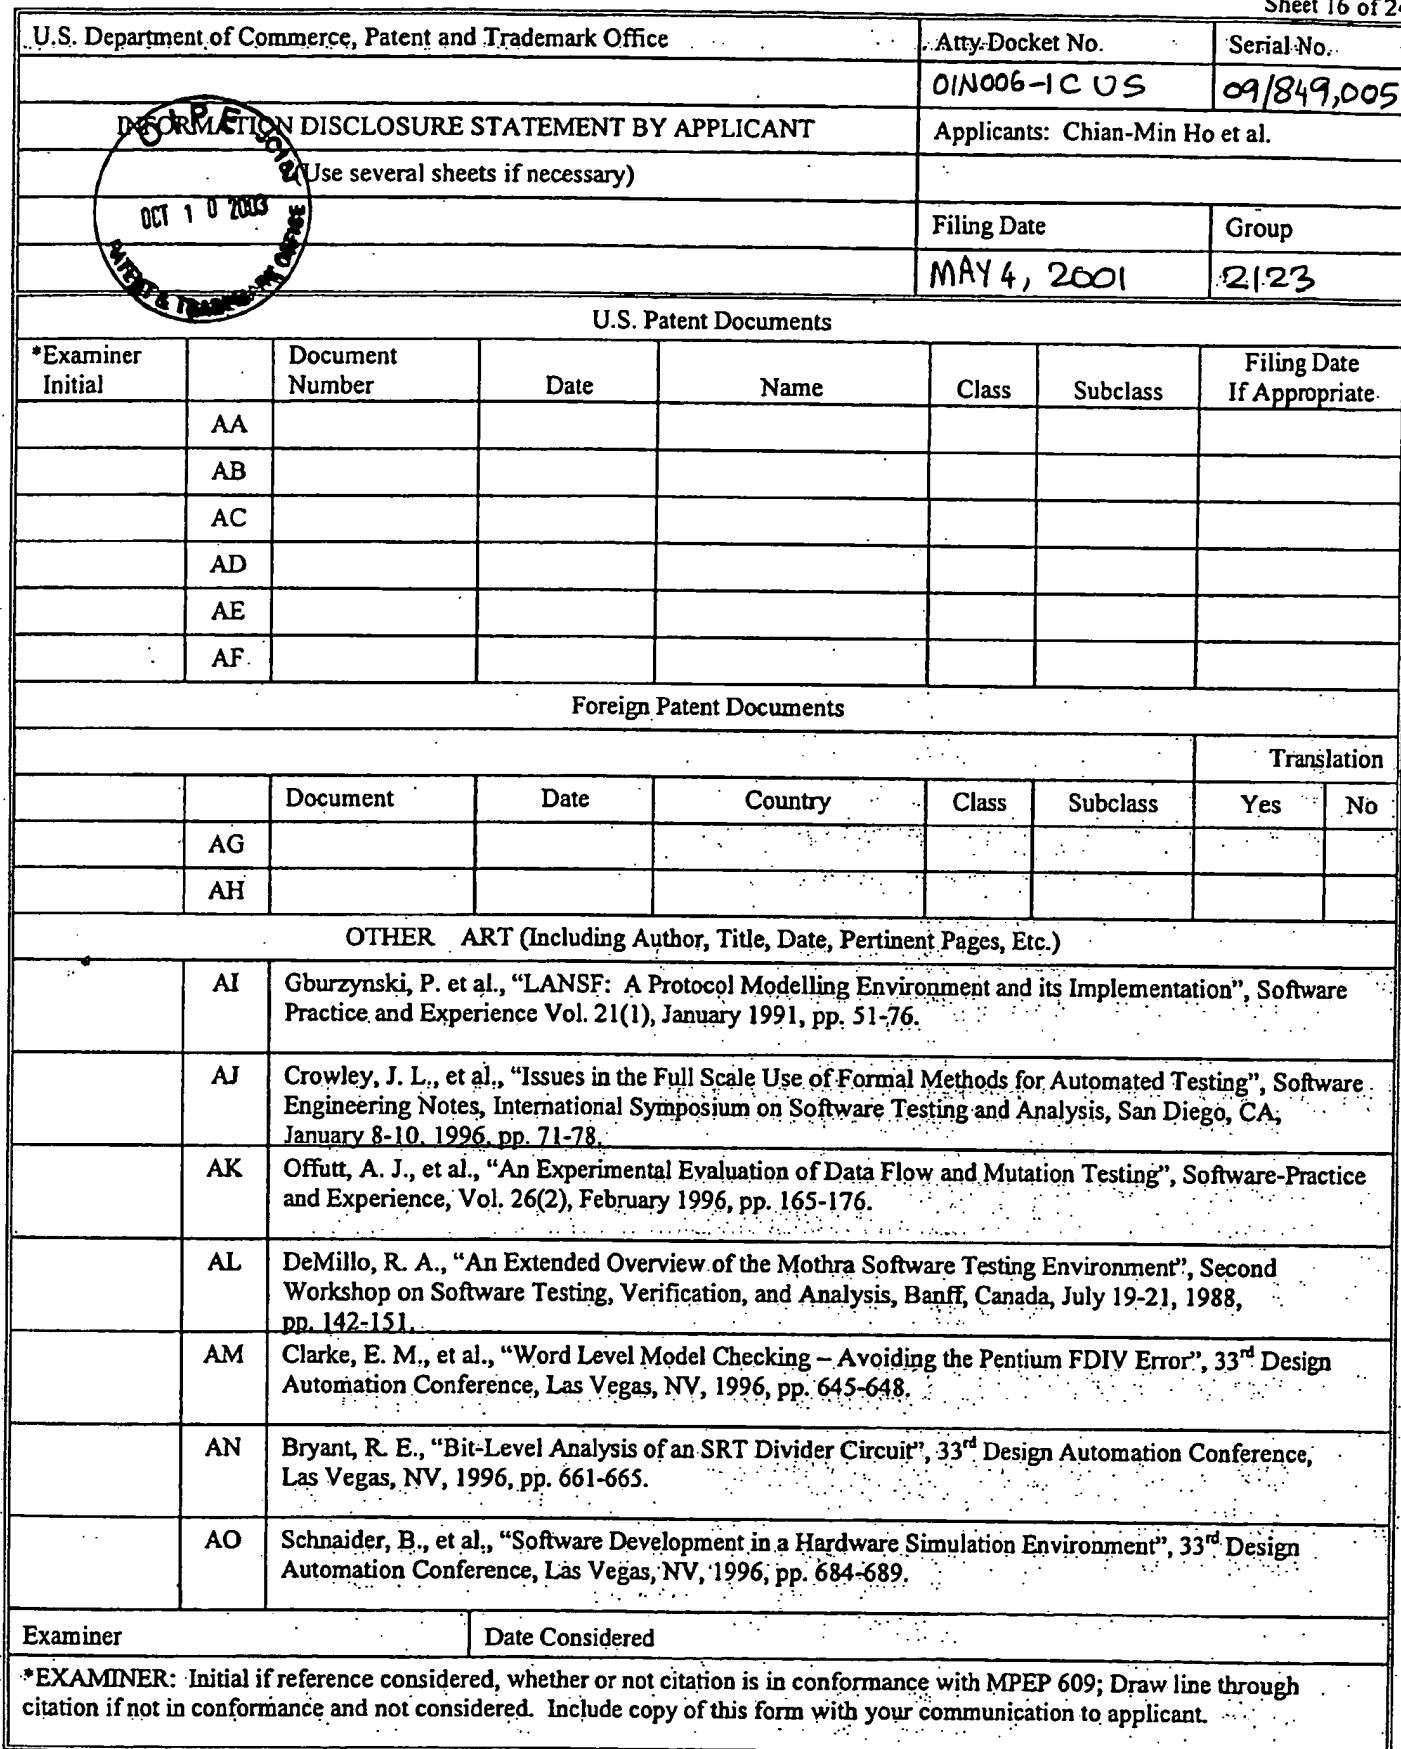 Sheet 16 of 24
U.S. Department of Commerce, Patent and Trademark Office
Atty Docket No.
Serial No.
OIN006-1C US
09/849,005
INFORMATION DISCLOSURE STATEMENT BY APPLICANT
Applicants: Chian-Min Ho et al.
(Use several sheets if necessary)
O I P E
OCT 10 2003
PATENT & TRADEMARK OFFICE
Filing Date
Group
MAY 4, 2001
2123
U.S. Patent Documents
*Examiner Initial
Document Number
Date
Name
Class
Subclass
Filing Date If Appropriate
AA
AB
AC
AD
AE
AF
Foreign Patent Documents
Translation
Document
Date
Country
Class
Subclass
Yes
No
AG
AH
OTHER ART (Including Author, Title, Date, Pertinent Pages, Etc.)
AI
Gburzynski, P. et al., “LANSF: A Protocol Modelling Environment and its Implementation”, Software
Practice and Experience Vol. 21(1), January 1991, pp. 51-76.
AJ
Crowley, J. L., et al., “Issues in the Full Scale Use of Formal Methods for Automated Testing”, Software
Engineering Notes, International Symposium on Software Testing and Analysis, San Diego, CA,
January 8-10, 1996, pp. 71-78.
AK
Offutt, A. J., et al., “An Experimental Evaluation of Data Flow and Mutation Testing”, Software-Practice
and Experience, Vol. 26(2), February 1996, pp. 165-176.
AL
DeMillo, R. A., “An Extended Overview of the Mothra Software Testing Environment”, Second
Workshop on Software Testing, Verification, and Analysis, Banff, Canada, July 19-21, 1988,
pp. 142-151.
AM
Clarke, E. M., et al., “Word Level Model Checking – Avoiding the Pentium FDIV Error”, 33rd Design
Automation Conference, Las Vegas, NV, 1996, pp. 645-648.
AN
Bryant, R. E., “Bit-Level Analysis of an SRT Divider Circuit”, 33rd Design Automation Conference,
Las Vegas, NV, 1996, pp. 661-665.
AO
Schnaider, B., et al., “Software Development in a Hardware Simulation Environment”, 33rd Design
Automation Conference, Las Vegas, NV, 1996, pp. 684-689.
Examiner
Date Considered
*EXAMINER: Initial if reference considered, whether or not citation is in conformance with MPEP 609; Draw line through
citation if not in conformance and not considered. Include copy of this form with your communication to applicant.